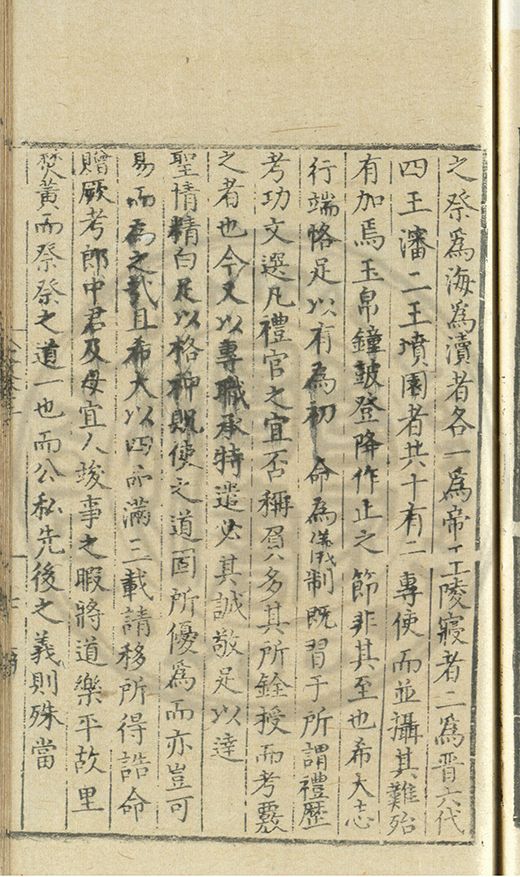 之祭爲海爲瀆者各一爲帝王陵寢者二爲晋六代
四王瀋二王墳園者共十有二專使而並攝其難殆
有加焉玉帛鐘皷登降作止之節非其至也希大志
行端恪足以有爲初命爲儀制既習于所謂禮歷
考功文選凡禮官之宜否稱員多其所銓授而考覈
之者也今又以專職承特遣必其誠敬足以達
聖情精白足以格神既使之道固所優爲而亦豈可
易而為之㢤且希大以四品滿三載請移所得誥命
贈厥考郎中君及母宜人竣事之暇將道樂平故里
焚黄而祭祭之道一也而公私先後之義則殊當